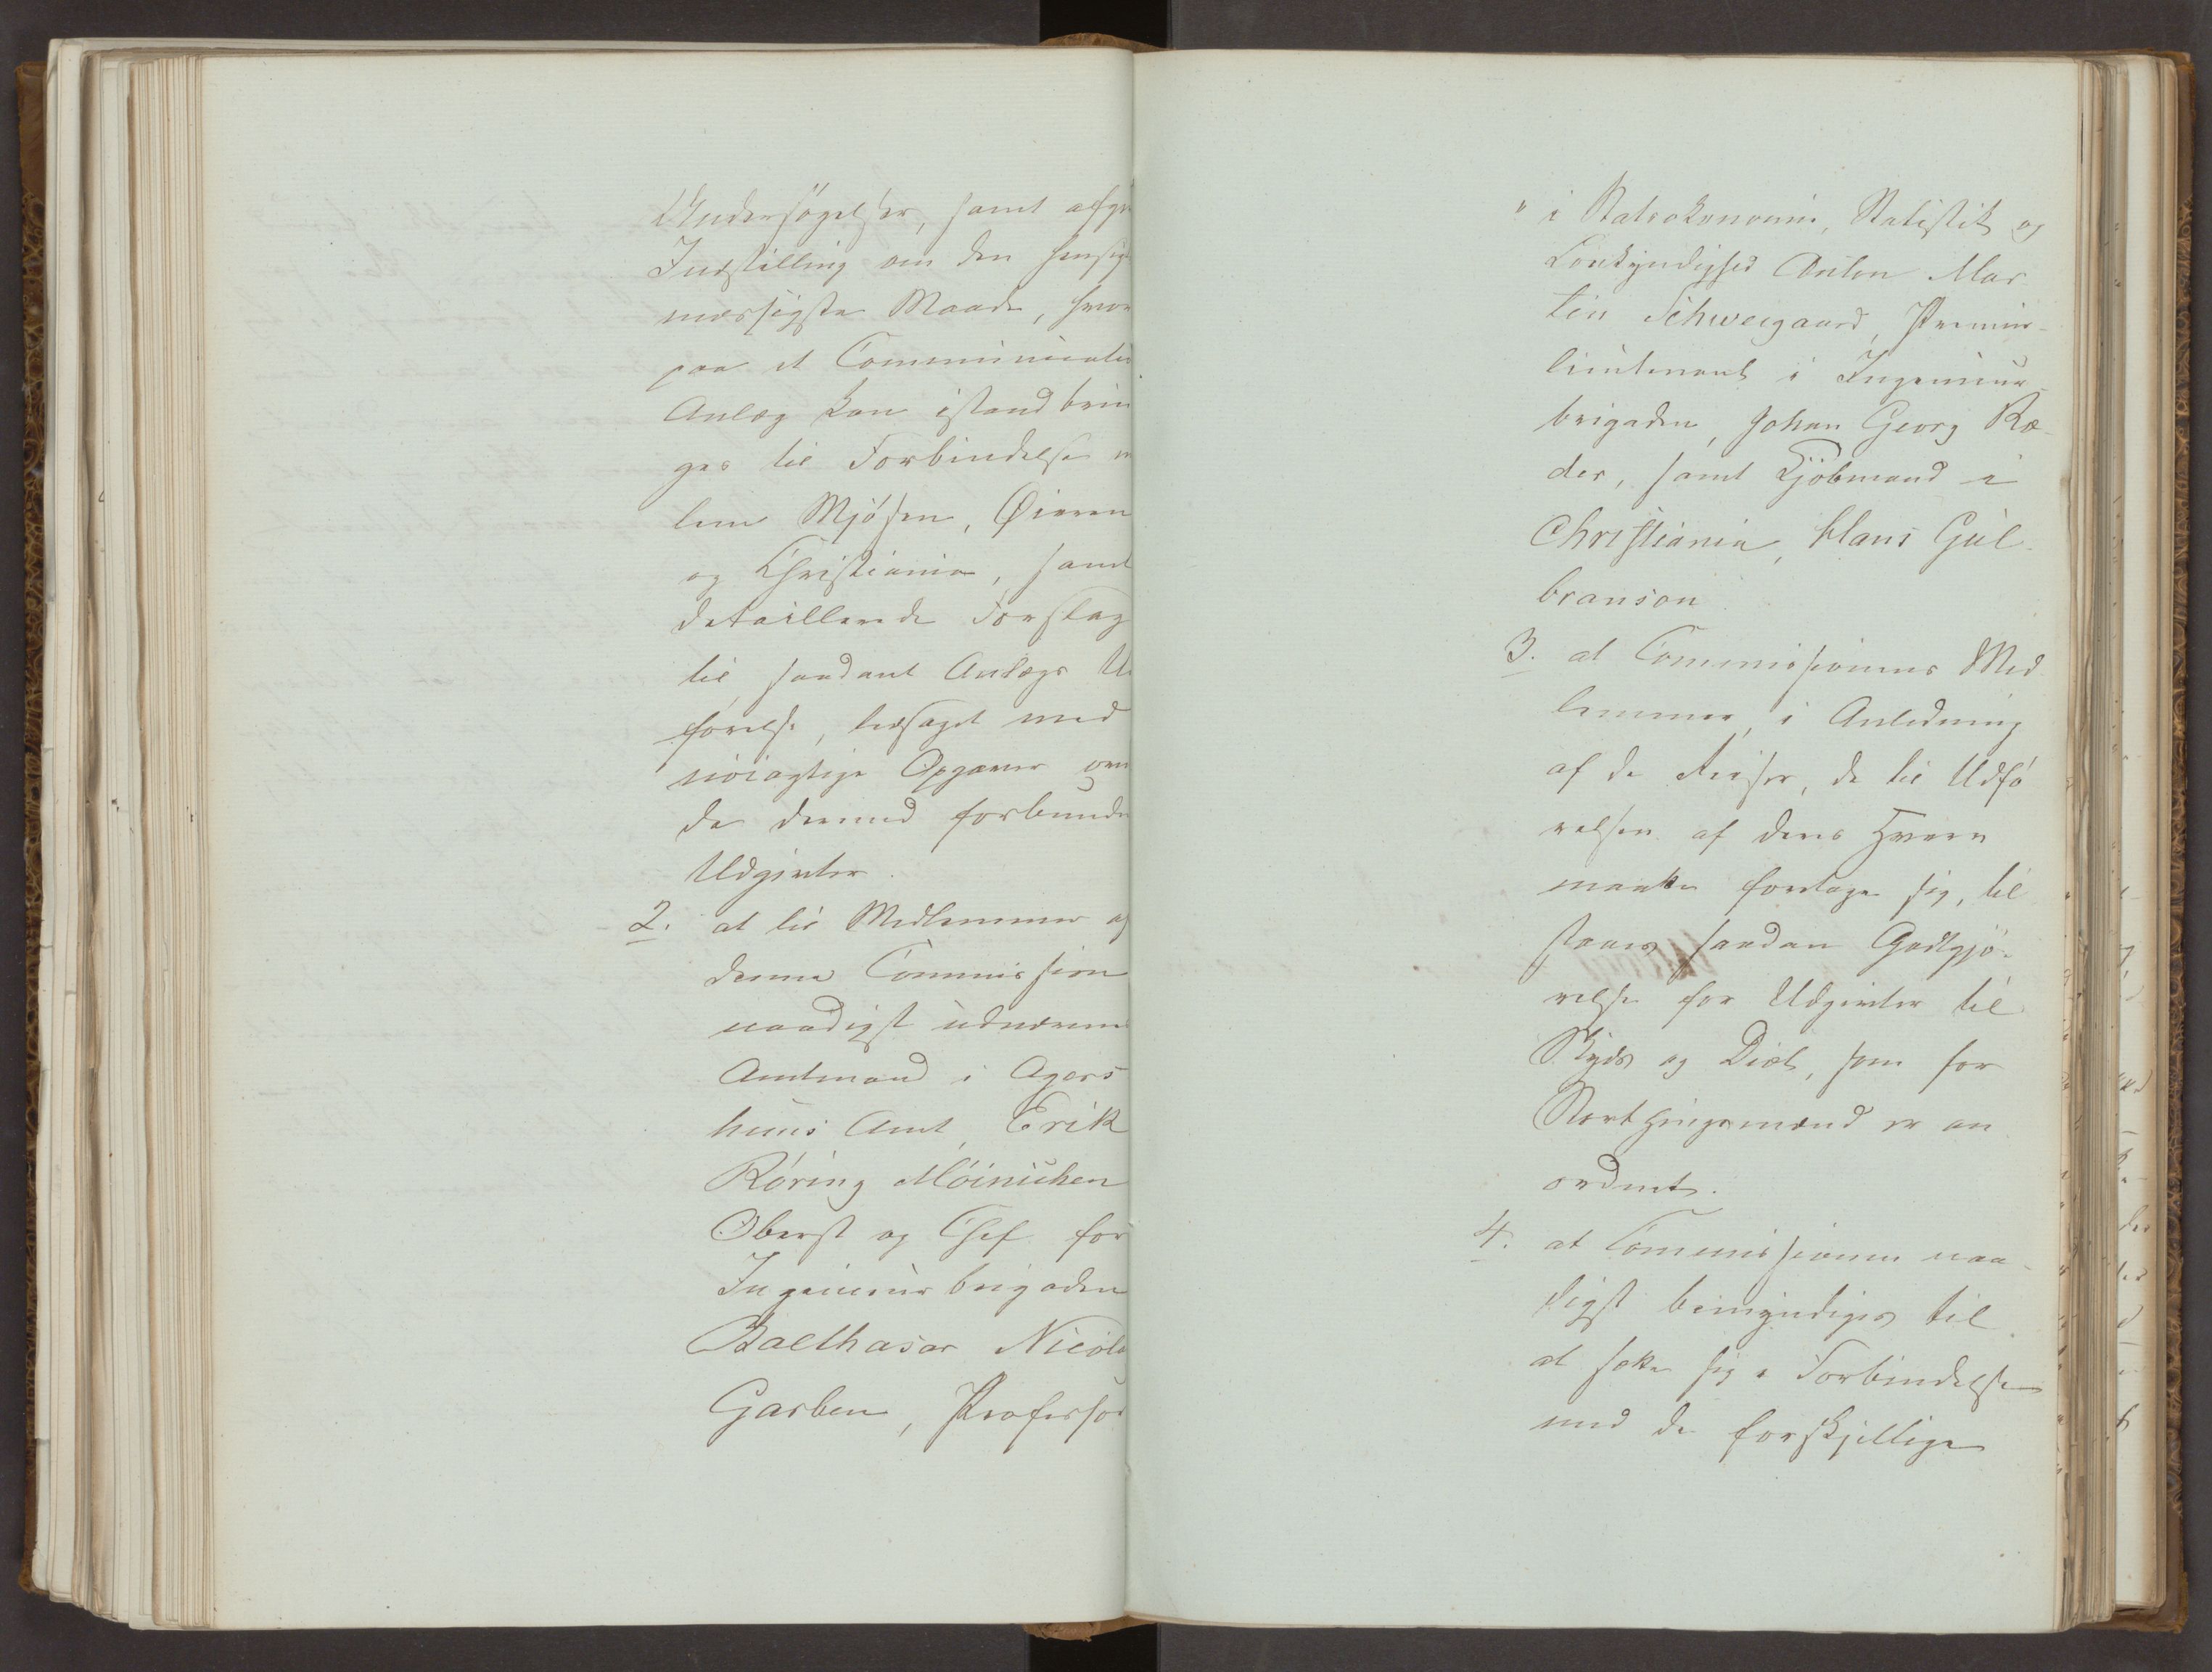 Undersøgelser, samt afgi
Indstilling om den hensigt
mæssigste Maade, hvor
paa et Communicatio
Anlæg kan istandbrin
ges til Forbindelse m
lem Mjøsen, Øieren
og Christiania, samt
detaillerede Forslag
til saadant Anlægs U
førelse, ledsaget med
nøiagtige Opgaver over
de dermed forbundn
Udgivter.
2. at til Medlemmer af
denne Commission
naadigst udnævnes
Amtmand i Agers
huus Amt, Erik
Röring Möinichen
Oberst og Chef for
Ingenieurbrigaden
Balthasar Nicola
Garben, Professor
" i Statsøkonomie, Statistik og
Lovkyndighed Anton Mar
tin Schweigaard, Premier-
lieutenant i Ingenieur-
brigaden, Johan Georg Ræ-
der, samt Kjøbmand i
Christiania, Hans Gul-
branson
3. at Commissionens Med
lemmer, i Anledning
af de Reiser, de til Udfø
relsen af deres Hverv
maatte foretage sig, til
staaes saadan Godtgjø-
relse for Udgivter til
Skyds og Diæt, som for
Storthingsmænd er an
ordnet.
4. at Commissionen naa-
digst bemyndiges til
at sætte sig i Forbindelse
med de forskjellige